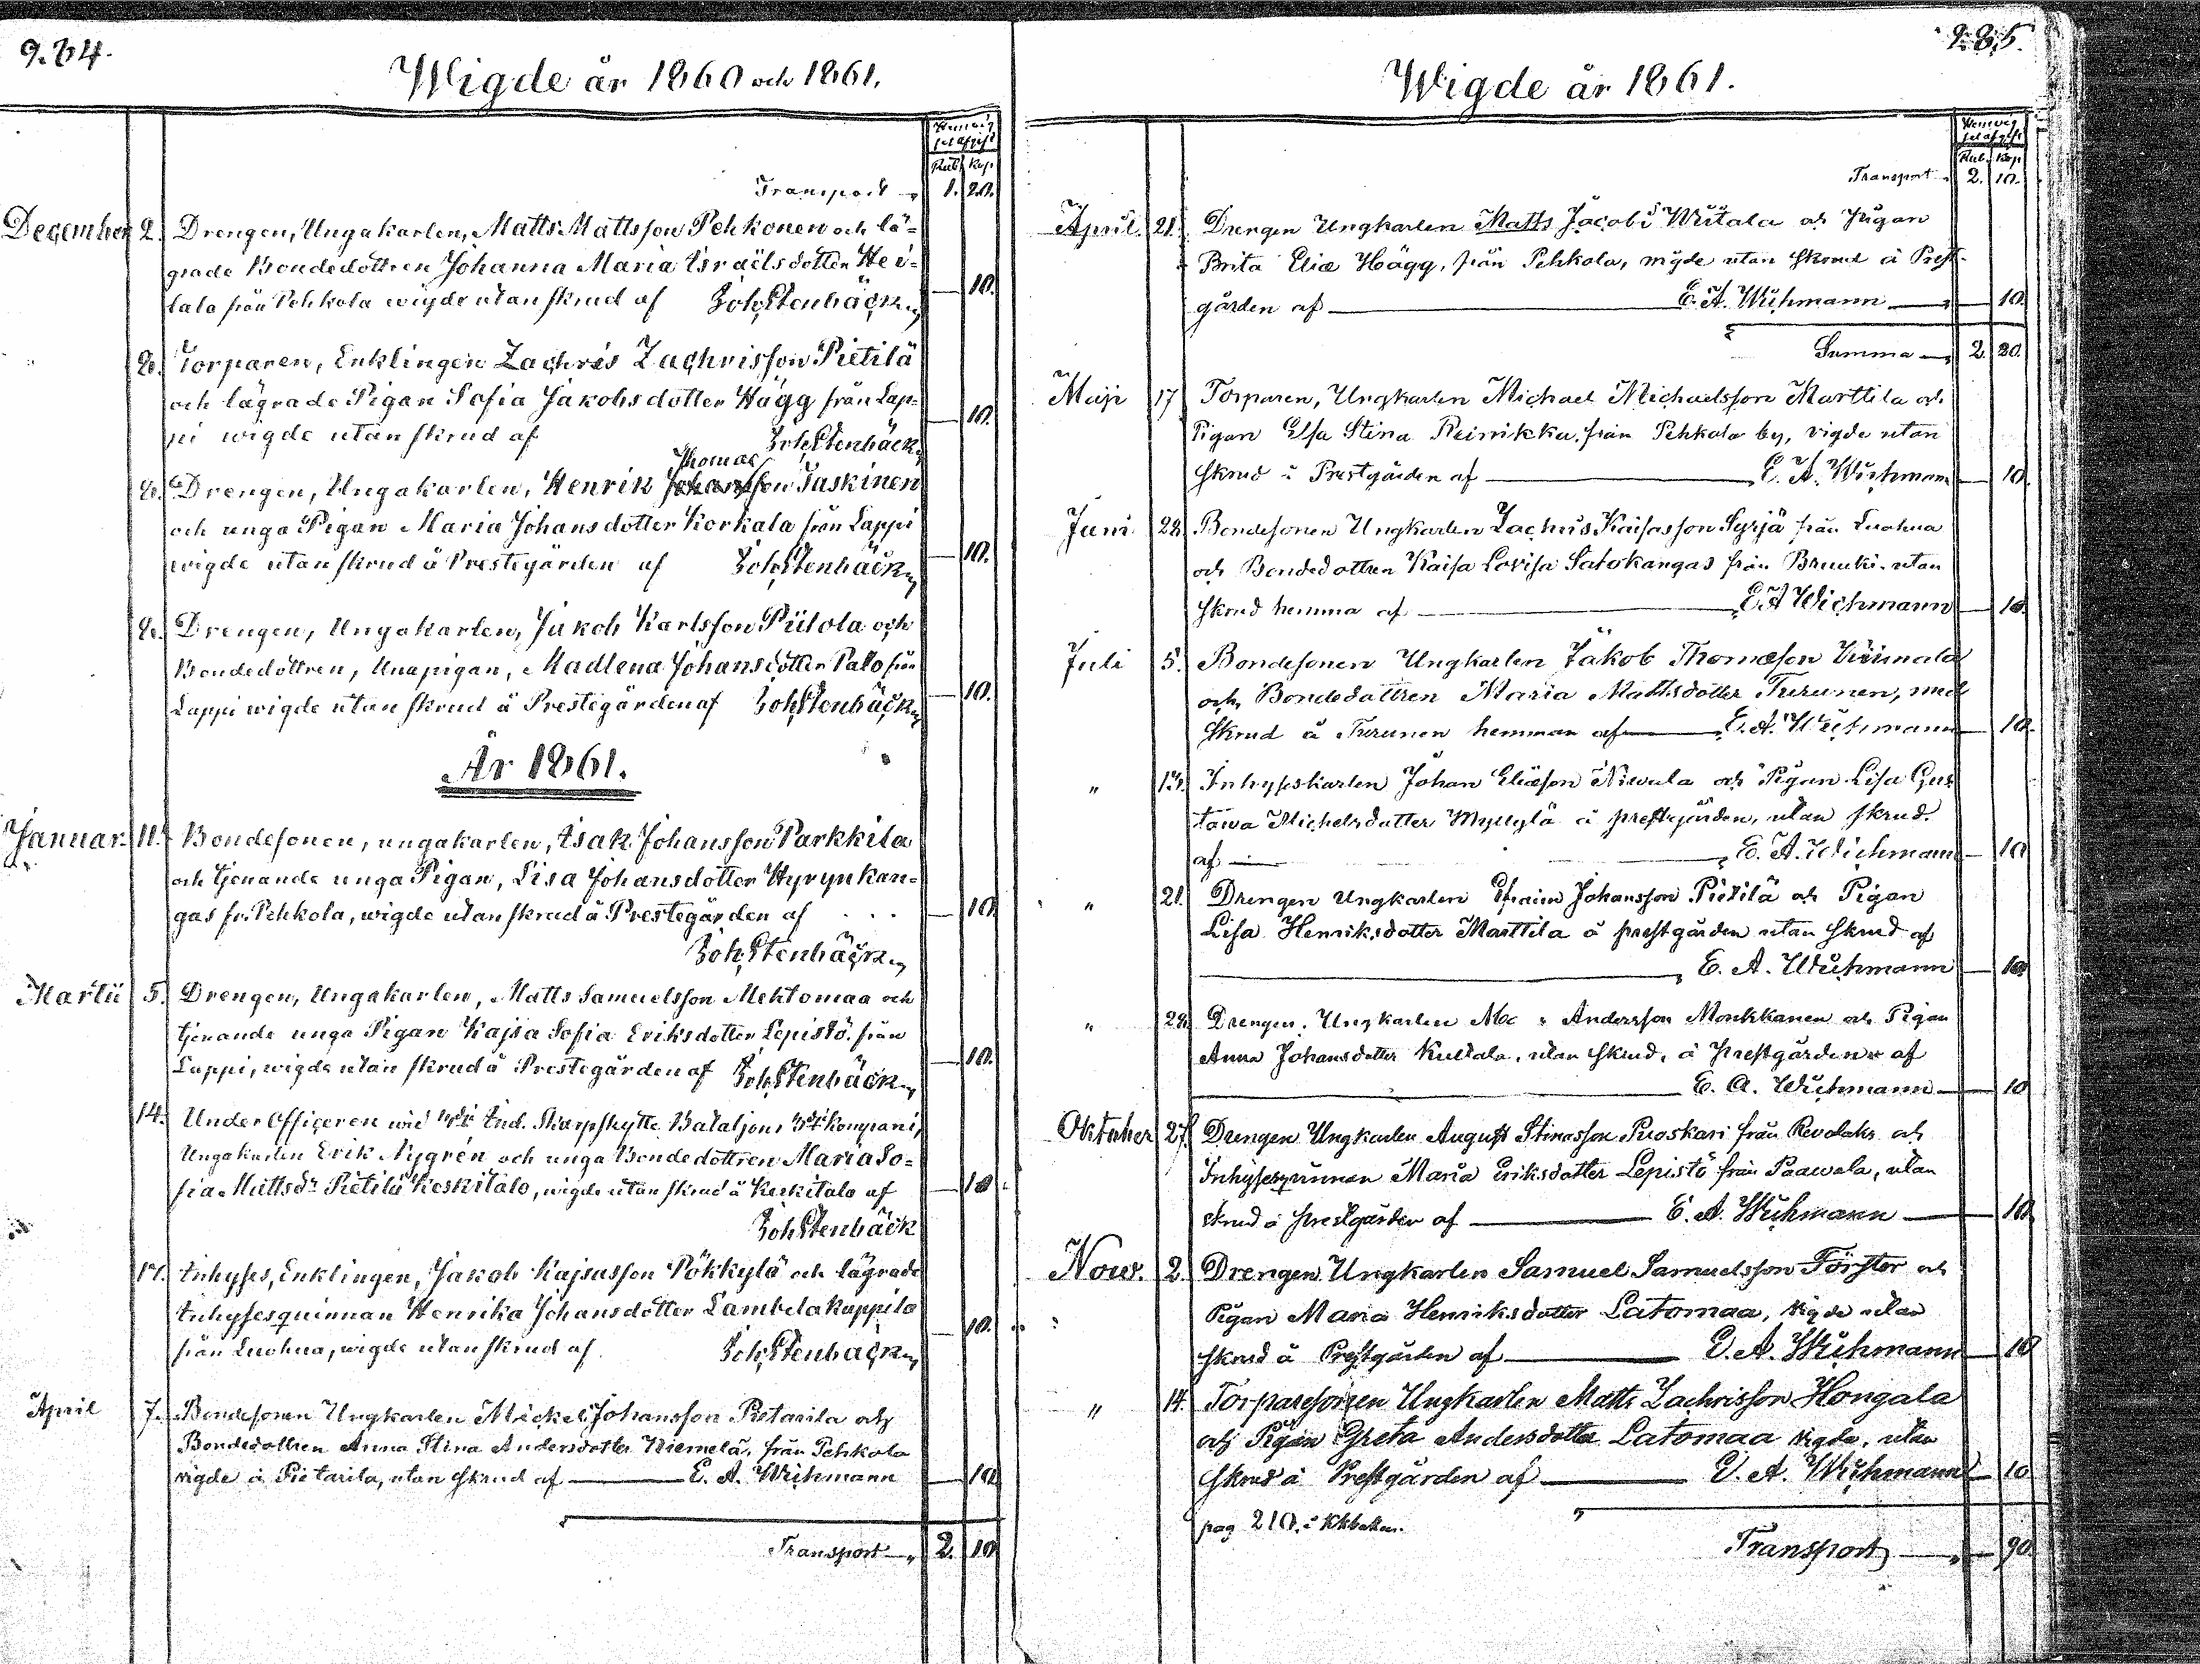 284.
Wigde år 1860 och 1861.
Rub. Kop.
Transport 1. 20.
December 2. Drengen, Ungakarlen, Matts Mattsson Pehkonen och lä-
grade Bondedottren Johanna Maria Israëlsdotter Hei-
lala från Pehkola wigde utan skrud af Joh. Stenbäck 10.
2. Torparen, Enklingen Zachris Zachrisson Pietilä
och lägrade Pigan Sofia Jakobsdotter Hägg från Lap-
pi wigde utan skrud af Joh. Stenbäck 10.
Thomas
2. Drengen, Ungakarlen, Henrik Johansson Taskinen
och unga Pigan Maria Johansdotter Korkala från Lappi
wigde utan skrud å Prestegården af Joh. Stenbäck 10.
2. Drengen, Ungakarlen, Jakob Karlsson Piilola och
Bondedottren, Ungapigan, Madlena Johansdotter Pallo från
Lappi wigde utan skrud å Prestegården af Joh. Stenbäck 10.
År 1861.
Januar. 11. Bondesonen, ungakarlen, Isak Johansson Parkkila
och tjenande unga Pigan, Lisa Johansdotter Hyrynkan-
gas fr. Pehkola, wigde utan skrud å Prestegården af . . . 10.
Joh. Stenbäck
Martii 5. Drengen, Ungakarlen, Matts Samuelsson Mehtomaa och
tjenande unga Pigan Kajsa Sofia Eriksdotter Lepistö från
Lappi, wigde utan skrud å Prestegården af Joh. Stenbäck 10.
14. Under Officeren wid Ind. Skarpskytte Bataljons kompani,
Ungakarlen Erik Nygrén och unga Bondedottren Maria So-
fia Mattsdr Pietilä Keskitalo, wigde utan skrud å Keskitalo af 10.
Joh. Stenbäck
17. Inhyses, Enklingen, Jakob Kajsasson Pökkylä och lägrade
Inhysesquinnan Henrika Johansdotter Lambelakuppila
från Luohua, wigde utan skrud af Joh. Stenbäck 10.
April 7. Bondesonen Ungkarlen Mickel Johansson Pietarila och
Bondedottren Anna Stina Andersdotter Niemelä, från Pehkola
vigde å Pietarila, utan skrud af E. A. Wichmann 10.
Transport 2. 10.
285.
Wigde år 1861.
Rub. Kop.
Transport 2. 10.
April. 21. Drengen Ungkarlen Matts Jacobi Wiitala och Pigan
Brita Eliæ Hägg, från Pehkola, wigde utan skrud å Prest-
gården af E. A. Wichmann 10.
Summa 2. 20.
Maji 17 Torparen, Ungkarlen Michael Michaelsson Marttila och
Pigan Elsa Stina Reinikka från Pehkola by, vigde utan
skrud i Prestgården af E. A. Wichmann 10.
Juni 28. Bondesonen Ungkarlen Zachris Kaisasson Syrjä från Luohua
och Bondedottren Kaisa Lovisa Satokangas från Bruuki utan
skrud hemma af E A Wichmann 10.
Juli 5. Bondesonen Ungkarlen Jakob Thomæson
och Bondedottren Maria Mattsdotter Turunen, med
skrud å Turunen hemman af E. A. Wichmann 10.
" 13. Inhyseskarlen Johan Eliæson Niwala och Pigan Lisa Gus
tawa Michelsdotter Myllylä å prestgården, utan skrud.
af E. A. Wichmann 10
" 21. Drengen Ungkarlen Efraim Johansson Pietilä och Pigan
Lisa Henriksdotter Marttila å prestgården utan skrud af
E. A. Wichmann 10.
" 28. Drengen, Ungkarlen Andersson Monkkanen och Pigan
Anna Johansdotter Kultala, utan skrud, å prestgården af
E. A. Wichmann 10
Oktober 27. Drengen Ungkarlen August Stinasson Puoskari från Revolaks och
Inhysesqvinnan Maria Eriksdotter Lepistö från Paawola, utan
skrud å prestgården af E. A. Wichmann 10.
Nov. 2. Drengen Ungkarlen Samuel Samuelsson Förster och
Pigan Maria Henriksdotter Latomaa, vigde utan
skrud å Prestgården af E. A. Wichmann 10
" 14. Torparesonen Ungkarlen Matts Zachrisson Hongala
och Pigan Greta Andersdotter Latomaa vigde, utan
skrud å Prestgården af E. A. Wichmann 10
pag 210. i Kkboken.
Transport 90.